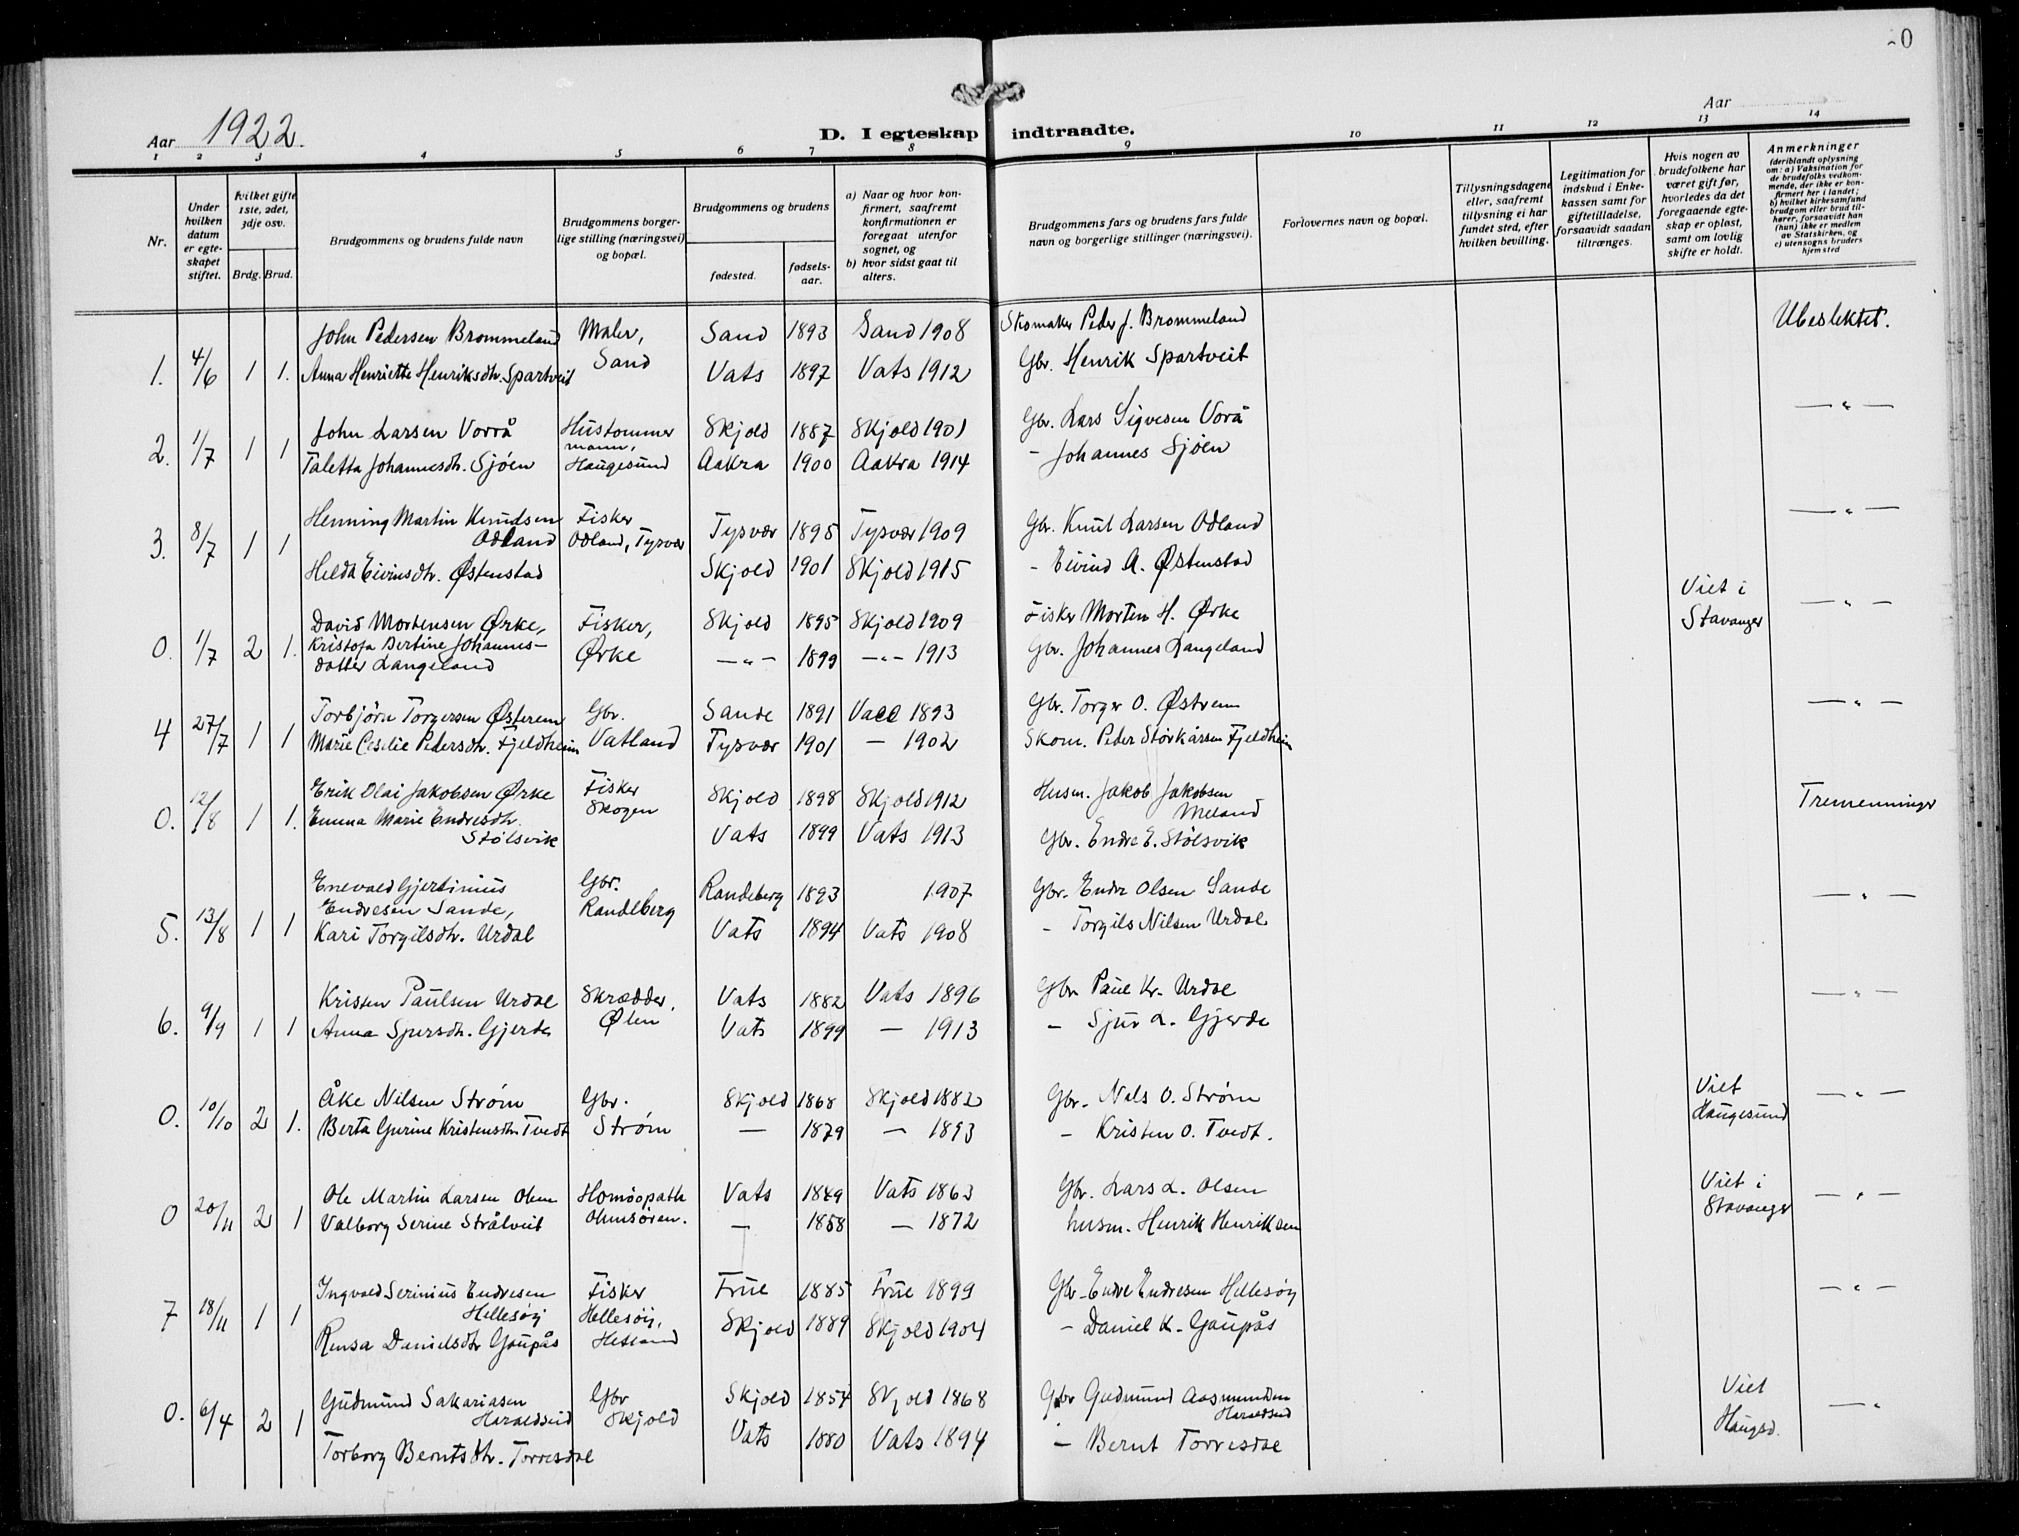 0
Aar 1922.
D. I egteskap indtraadte.
Aar
1 2 3 4 5 6 7 8 9 10 11 12 13 14
Nr.
Under hvilken datum er egteskapet stiftet.
hvilket gifte 1ste, 2det, 3dje osv.
Brdg. Brud.
Brudgommens og brudens fulde navn
Brudgommens borgerlige stilling (næringsvei) og bopæl.
Brudgommens og brudens
fødested.
fødselsaar.
a) Naar og hvor konfirmert, saafremt konfirmationen er foregaat utenfor sognet, og
b) hvor sidst gaat til alters.
Brudgommens fars og brudens fars fulde navn og borgerlige stillinger (næringsvei).
Forlovernes navn og bopæl.
Tillysningsdagene eller, saafremt tillysning ei har fundet sted, efter hvilken bevilling.
Legitimation for indskud i Enkekassen samt for giftetilladelse, forsaavidt saadan tiltrænges.
Hvis nogen av brudefolkene har været gift før, hvorledes da det foregaaende egteskap er opløst, samt om lovlig skifte er holdt.
Anmerkninger
(deriblandt oplysning om: a) Vaksination for de brudefolks vedkommende, der ikke er konfirmert her i landet; b) hvilket kirkesamfund brudgom eller brud tilhører, forsaavidt han (hun) ikke er medlem av Statskirken, og c) utensogns bruders hjemsted
John Pedersen Brommeland Maler, Sand 1893 Sand 1908 Skomaker Peder J. Brommeland Ubeslektet.
1. 4/6 1 1. Anna Henriette Henriksdtr. Spartveit Sand Vats 1897 Vats 1912 Gbr. Henrik Spartveit
John Larsen Vorrå Hustømmermann, Skjold 1887 Skjold 1901 Gbr. Lars Sigvesen Vorå — " —
2. 1/7 1 1 Taletta Johannesdtr. Sjøen Haugesund Aakra 1900 Aakra 1914 - Johannes Sjøen
Henning Martin Knudsen Fisker
3. 8/7 1 1 Odland Odland, Tysvær Tysvær 1895 Tysvær 1909 Gbr. Knut Larsen Odland — " —
Helda Eivindsdtr. Østenstad Skjold 1901 Skjold 1915 - Eivind A. Østenstad
David Mortensen Ørke, Fisker, Skjold 1895 Skjold 1909 Fisker Morten H. Ørke Viet i Stavanger — " —
0. 1/7 2 1. Kristofa Bertine Johannes-
datter Langeland Ørke — " — 1899 — " — 1913 Gbr. Johannes Langeland
Torbjørn Torgersen Østerem Gbr. Sande 1891 Vacc 1893 Gbr. Torger O. Østrem — " —
4 27/7 1 1 Marie Cesilie Pedersdtr. Fjeldheim Vatland Tysvær 1901 — 1902 Skom. Peder Størkårsen Fjeldheim
Erik Olai Jakobsen Ørke Fisker Skjold 1898 Skjold 1912 Husm. Jakob Jakobsen Meland Tremenninger
0. 12/8 1 1. Emma Marie Endresdtr. Skogen
Stølsvik Vats 1899 Vats 1913 Gbr. Endre E. Stølsvik
Enevald Gjertinius Gbr. Randeberg 1893 1907 Gbr. Endre Olsen Sande — " —
Endresen Sande, Randeberg
5. 13/8 1 1 Kari Torgilsdtr. Urdal Vats 1894 Vats 1908 - Torgils Nilsen Urdal
Kristen Paulsen Urdal Skrædder, Vats 1882 Vats 1896 Gbr. Paul Kr. Urdal — " —
6. 9/9 1 1 Anna Sjursdtr. Gjerde Ølen Vats 1899 — 1913 - Sjur L. Gjerde
Åke Nilsen Strøm Gbr. Skjold 1868 Skjold 1882 Gbr. Nels O. Strøm Viet Haugesund — " —
0. 10/10 2 1. Berta Gurine Kristensdtr. Tvedt Strøm — 1879 — 1893 - Kristen O. Tvedt.
Ole Martin Larsen Olsen Homöopath Vats 1849 Vats 1863 Gbr. Lars L. Olsen Viet i Stavanger — " —
0 20/11 2 1 Valborg Serine Stråtveit — 1858 — 1872 husm. Henrik Henriksen
Ingvald Serinius Endresen Fisker Frue 1885 Frue 1899 Gbr. Endre Endresen Hellesøy — " —
7 18/11 1 1 Hellesøy Hellesøy,
Rensa Danielsdtr Gaupås Hetland Skjold 1889 Skjold 1904 - Daniel K. Gaupås
Gudmund Sakariassen Gbr Skjold 1854 Skjold 1868 Gbr Gudmund Aasmundsen Haraldseid Viet Haugsd. — "
0. 6/4 2 1 Haraldseid Skjold
Torborg Berntsdtr. Torresdal Vats 1880 Vats 1894 - Bernt Torresdal